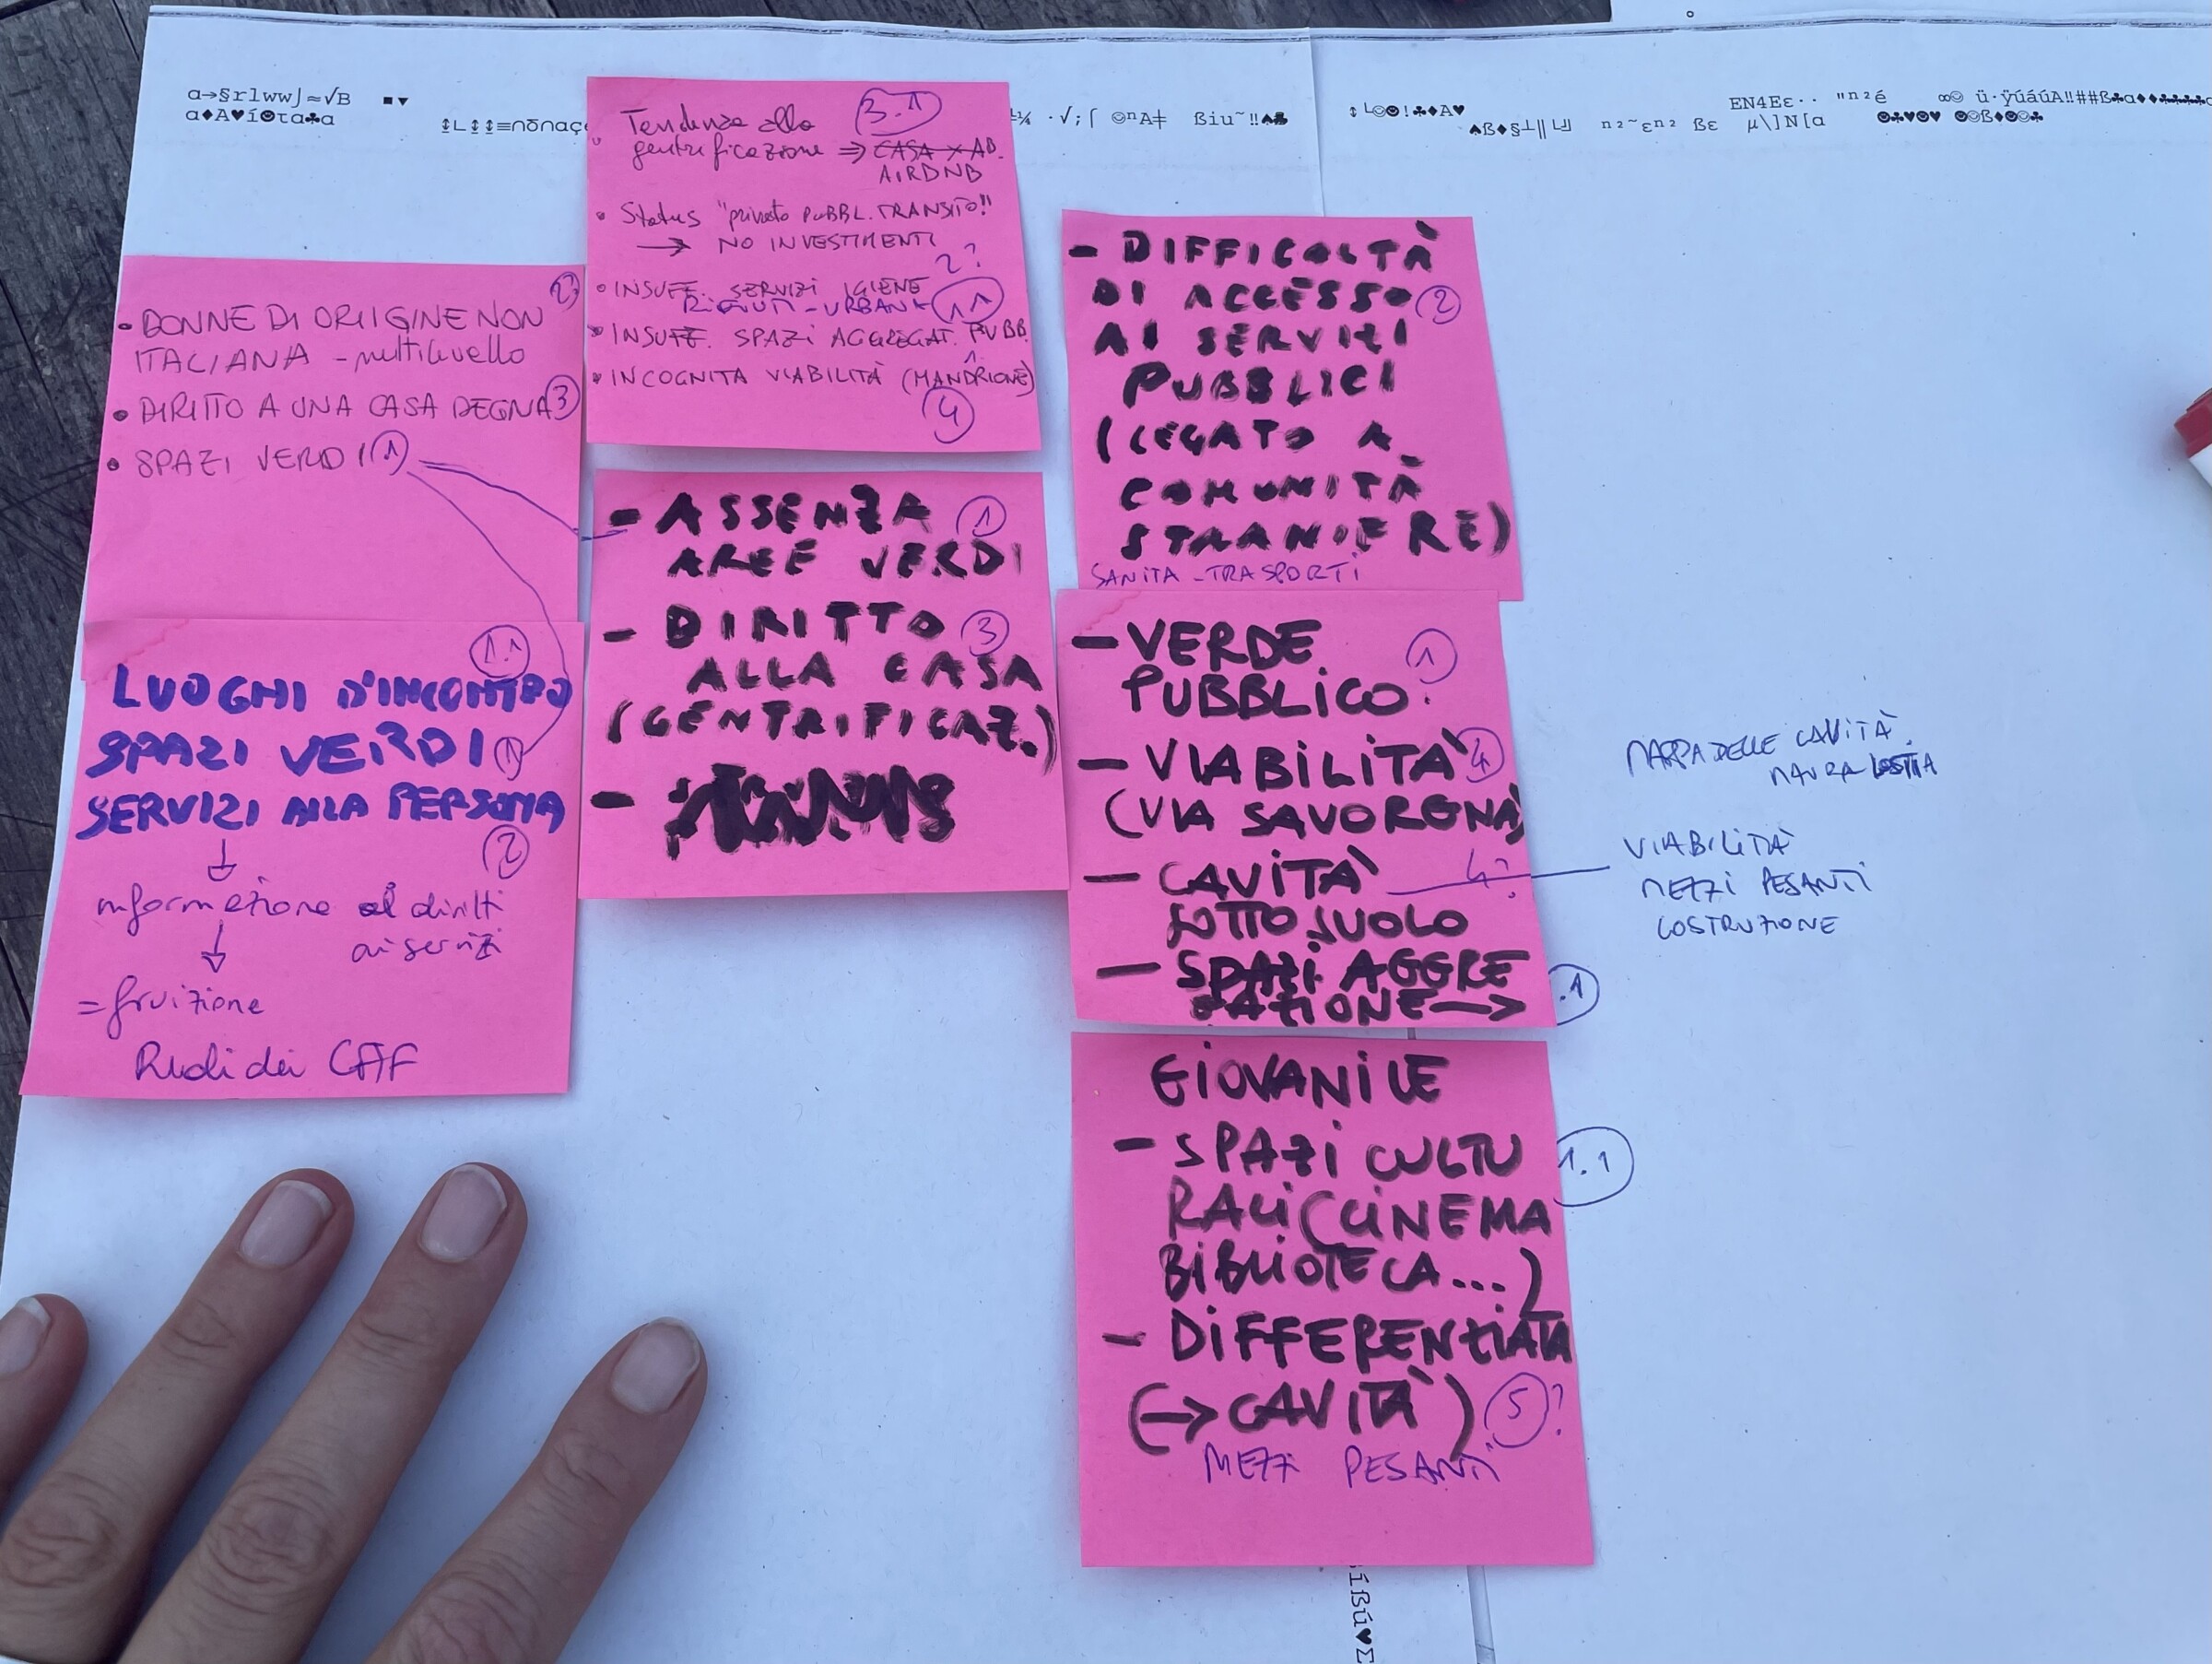 • DONNE DI ORIIGINE NON 2)
ITALIANA - multilivello
• DIRITTO A UNA CASA DEGNA 3
• SPAZI VERDI 1
1.1
LUOGHI D'INCONTRO
SPAZI VERDI 1
SERVIZI ALLA PERSONA
↓ 2
informazione diritti
ai servizi
↓
= fruizione
CAF
Tendenza alla 3.1
gentrificazione ⇒ CASA X AB.
AIRDNB
• Status "privato PUBBL. TRANSITO!!
→ NO INVESTIMENTI
2?
• INSUFF. SERVIZI IGIENE
RIFIUTI - URBANA 1.1
• INSUFF. SPAZI AGGREGAT. PUBB.
1.
• INCOGNITA VIABILITÀ (MANDRIONE)
4
- ASSENZA 1
AREE VERDI
- DIRITTO 3
ALLA CASA
(GENTRIFICAZ.)
-
- DIFFICOLTÀ
DI ACCESSO 2
AI SERVIZI
PUBBLICI
(LEGATO A
COMUNITÀ
STRANIERE)
SANITA - TRASPORTI
- VERDE 1
PUBBLICO.
- VIABILITA' 4
(VIA SAVORGNA)
- CAVITA' 4?
SOTTOSUOLO
- SPAZI AGGRE
GAZIONE → .1
GIOVANILE
- SPAZI CULTU 1.1
RALI (CINEMA
BIBLIOTECA...)
- DIFFERENZIATA
(→ CAVITA') 5?
MEZZI PESANTI
MAPPA DELLE CAVITÀ.
VIABILITÀ
MEZZI PESANTI
COSTRUZIONE